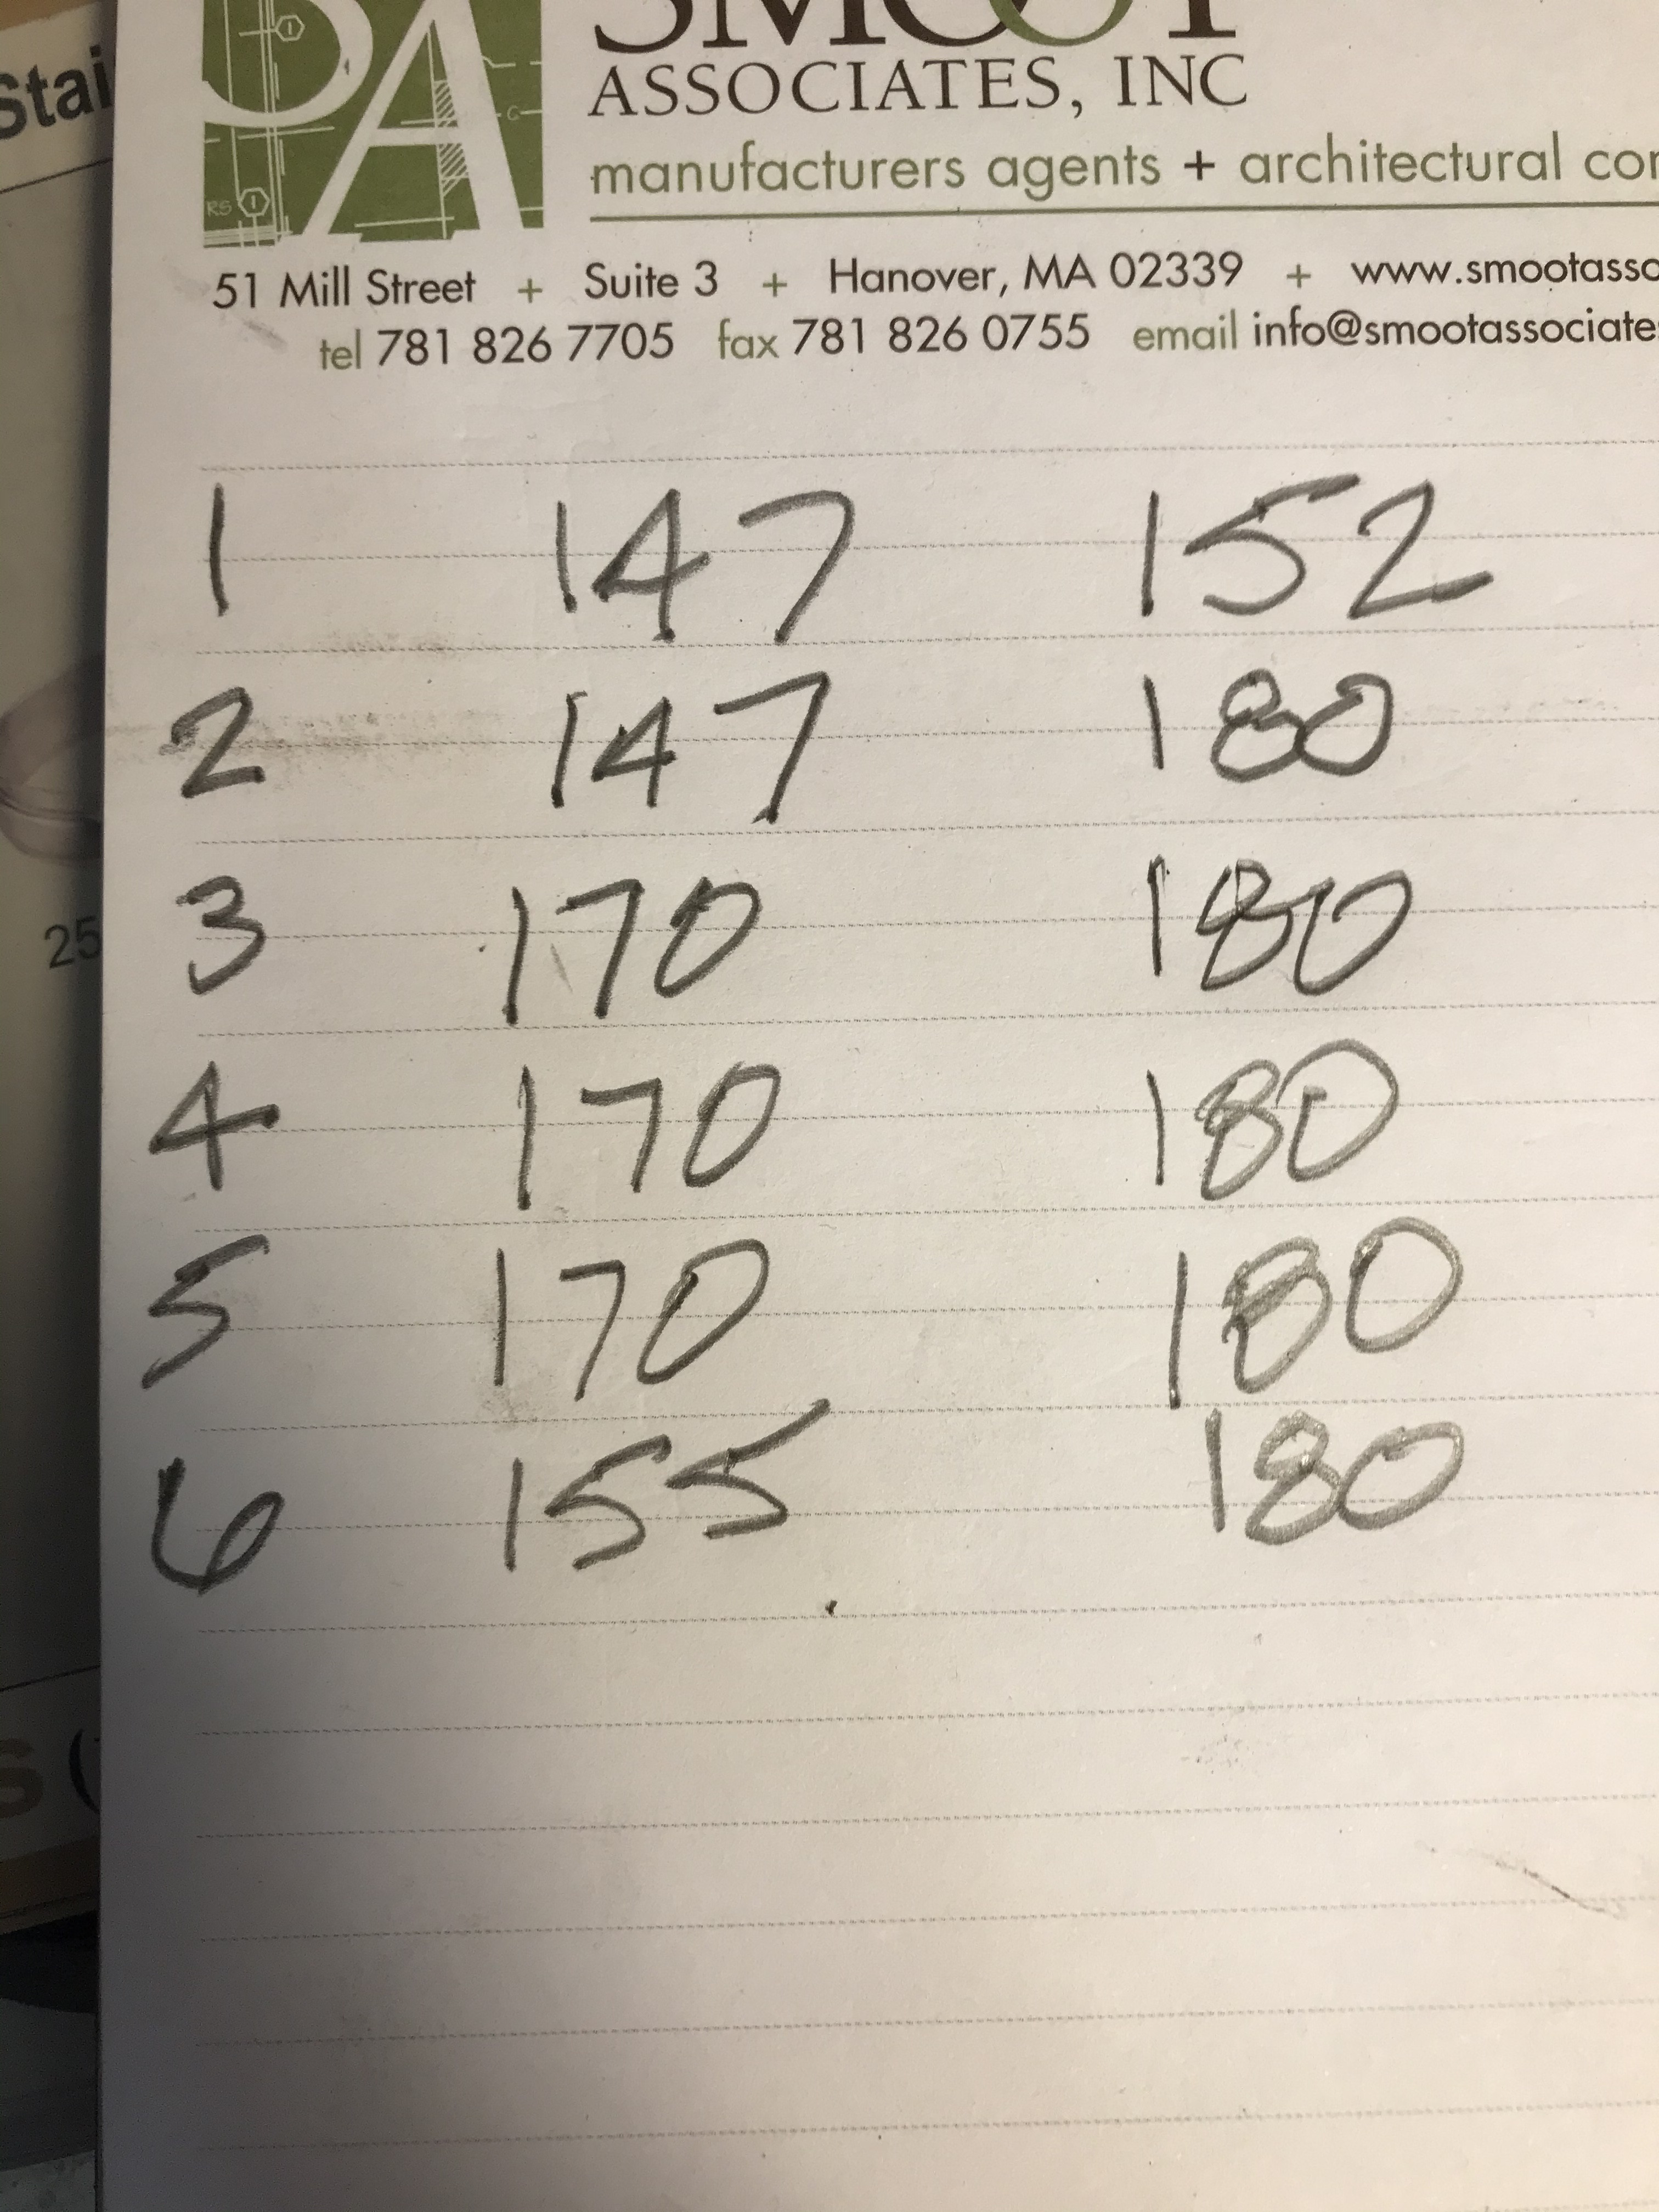 Stai
SA
SMOOT
ASSOCIATES, INC
manufacturers agents + architectural cor
51 Mill Street + Suite 3 + Hanover, MA 02339 + www.smootasso
tel 781 826 7705 fax 781 826 0755 email info@smootassociate
RS
C
1 147 152
2 147 180
3 170 180
25
4 170 180
5 170 180
6 155 180
S (